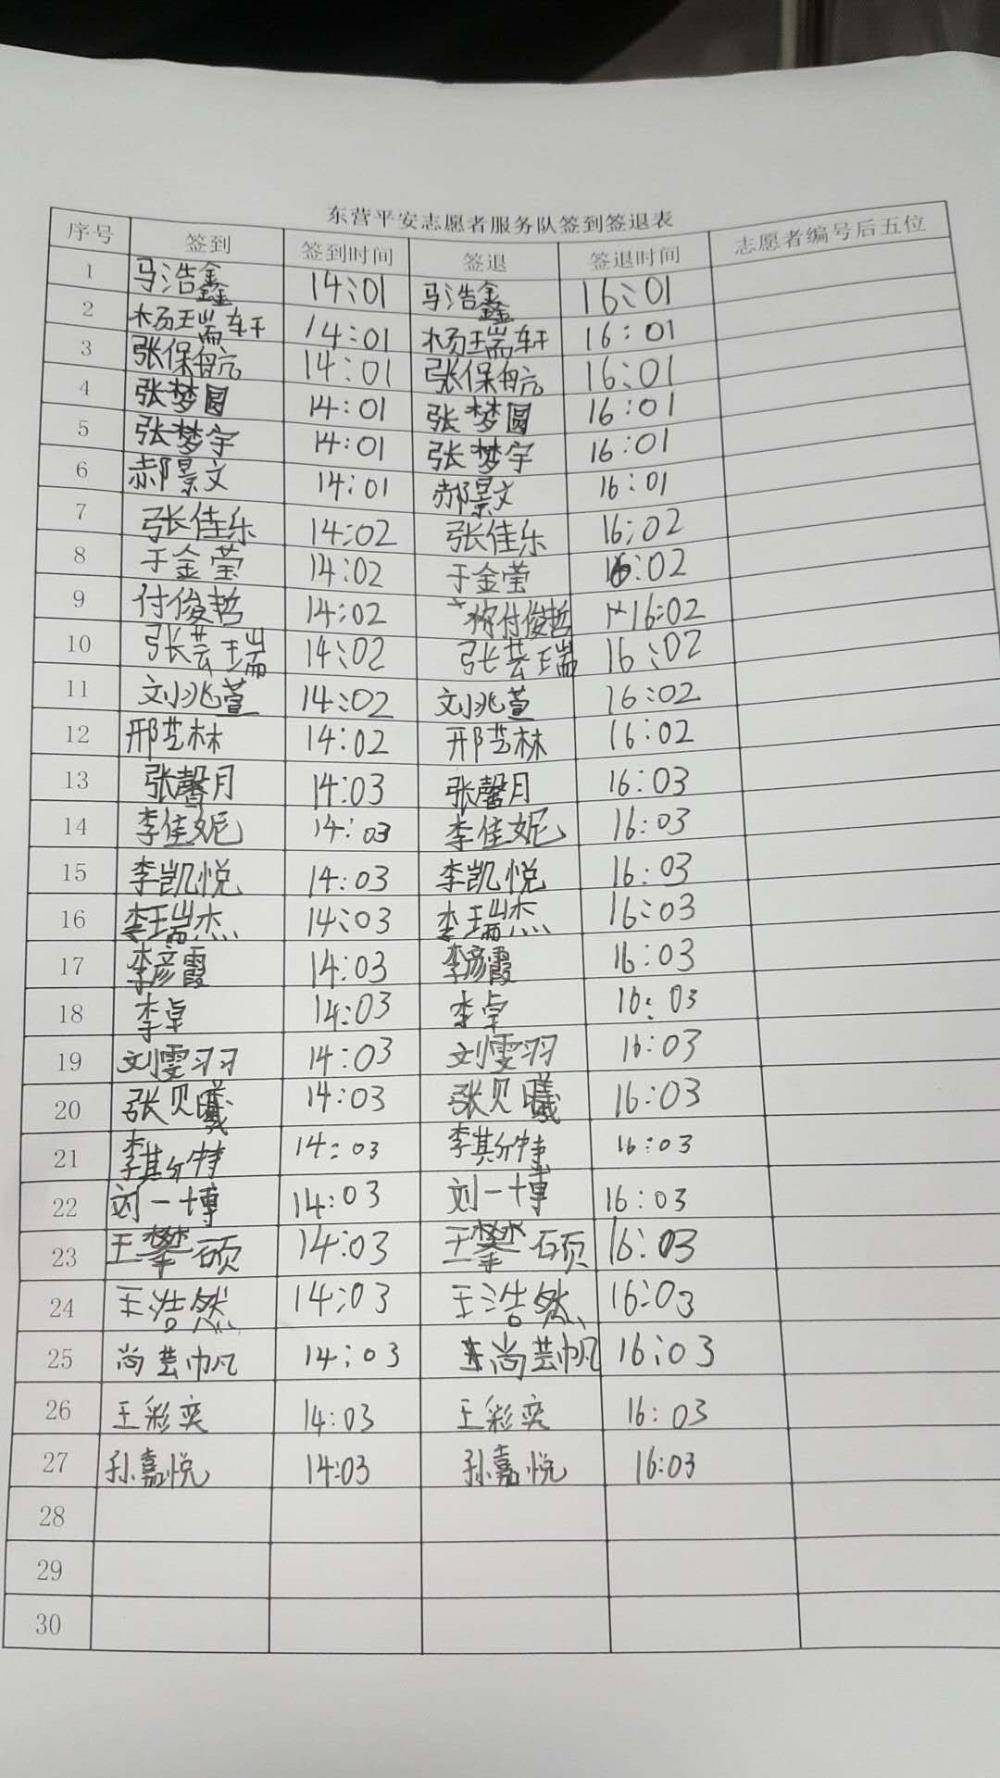 东营平安志愿者服务队签到签退表
序号 签到 签到时间 签退 签退时间 志愿者编号后五位
1 马浩鑫 14:01 马浩鑫 16:01
2 杨瑞轩 14:01 杨瑞轩 16:01
3 张保航 14:01 张保航 16:01
4 张梦圆 14:01 张梦圆 16:01
5 张梦宇 14:01 张梦宇 16:01
6 郝景文 14:01 郝景文 16:01
7 张佳乐 14:02 张佳乐 16:02
8 于金莹 14:02 于金莹 16:02
9 付俊哲 14:02 付俊哲 16:02
10 张芸瑞 14:02 张芸瑞 16:02
11 刘兆萱 14:02 刘兆萱 16:02
12 邢艺林 14:02 邢艺林 16:02
13 张馨月 14:03 张馨月 16:03
14 李佳妮 14:03 李佳妮 16:03
15 李凯悦 14:03 李凯悦 16:03
16 李瑞杰 14:03 李瑞杰 16:03
17 李彦霞 14:03 李彦霞 16:03
18 李卓 14:03 李卓 16:03
19 刘雯羽 14:03 刘雯羽 16:03
20 张贝曦 14:03 张贝曦 16:03
21 14:03 16:03
22 刘一博 14:03 刘一博 16:03
23 王攀硕 14:03 王攀硕 16:03
24 王浩然 14:03 王浩然 16:03
25 尚芸帆 14:03 尚芸帆 16:03
26 王彩奕 14:03 王彩奕 16:03
27 孙嘉悦 14:03 孙嘉悦 16:03
28
29
30